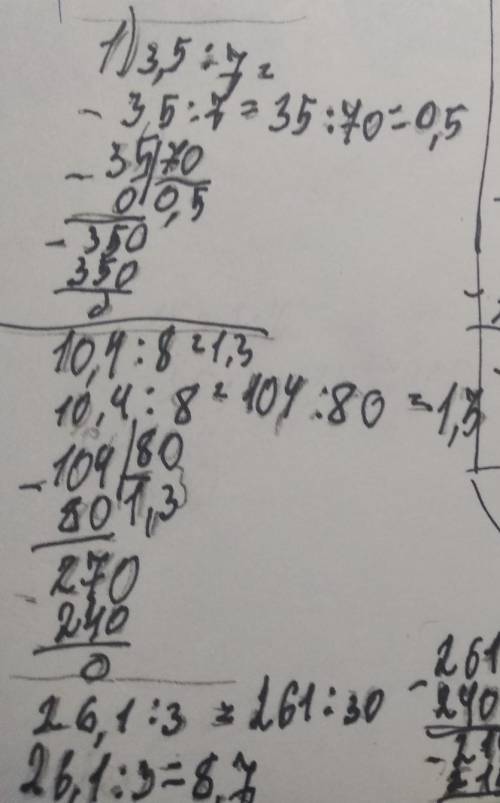 1) 3,5 : 7 =
- 3,5 : 7 = 35 : 70 = 0,5
- 35 | 70
0 | 0,5
- 350
350
0
10,4 : 8 = 1,3
10,4 : 8 = 104 : 80 = 1,3
- 104 | 80
80 | 1,3
- 270
240
0
26,1 : 3 = 261 : 30
26,1 : 3 = 8,7
- 261
240
- 21
21